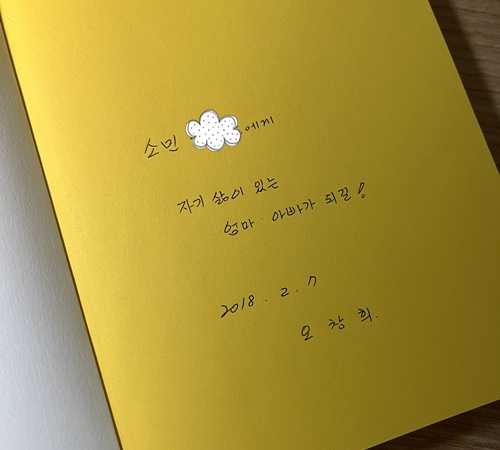 소민 에게
자기 삶이 있는
엄마·아빠가 되길!
2018. 2. 7
오 창 희.